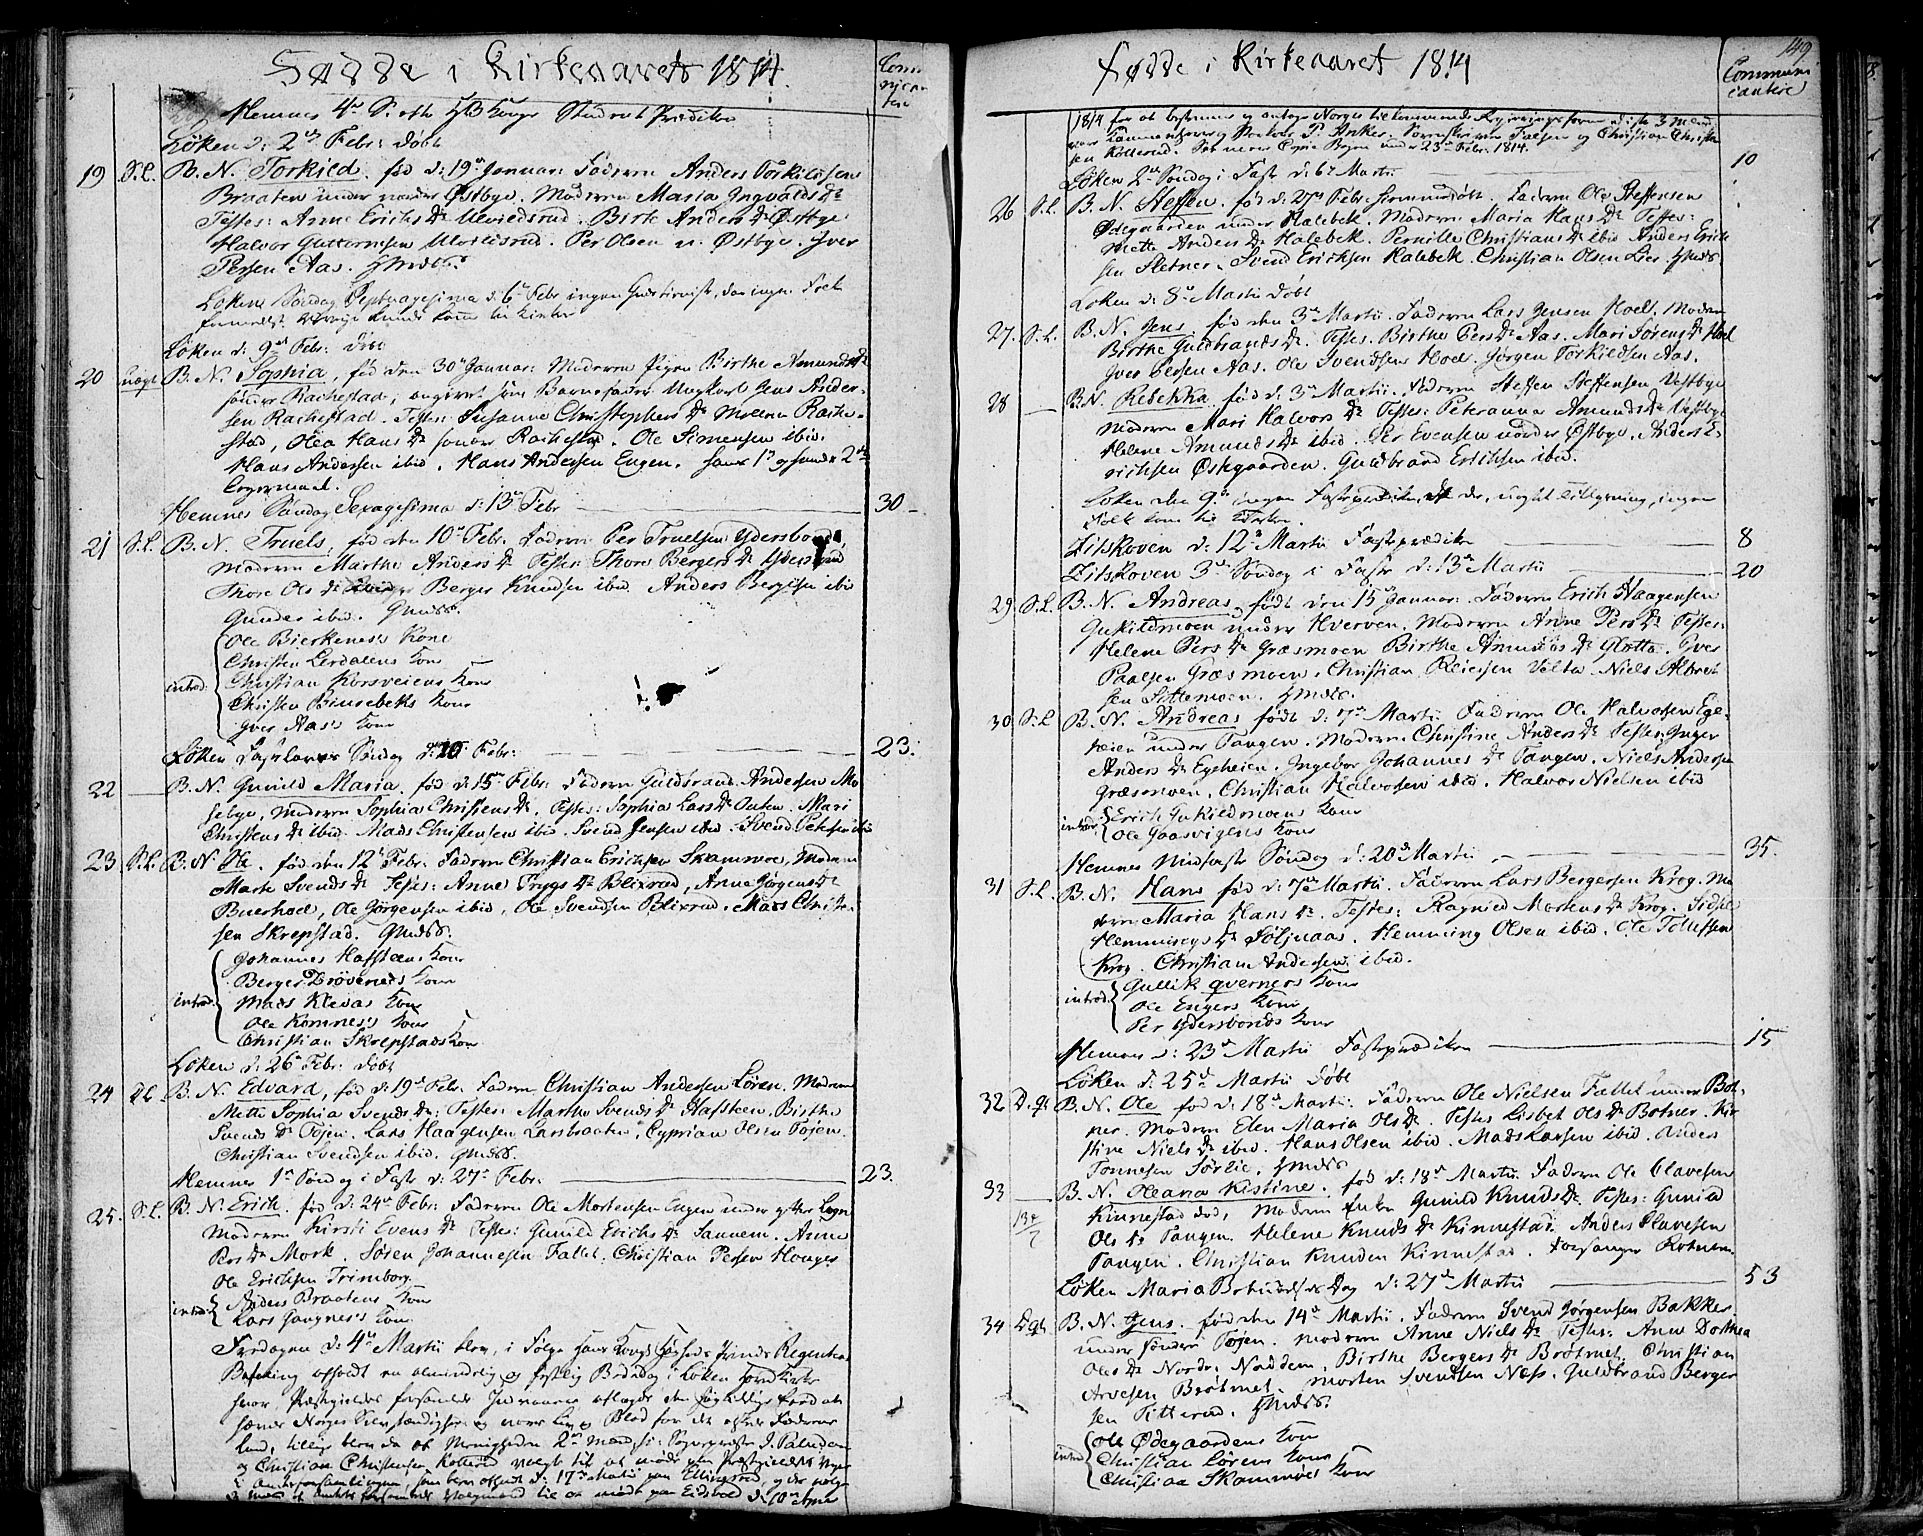 Fødde i Kirkeaaret 1814.
Com-
nican-
tere
Hemnes 4de S. efter Student Prædiken
Løken d: 2de Febr: døbt
19 S.L. B. N. Torkild. fød d: 19de Januar: Faderen Anders Torkildsen
Braaten under nordre Østbye. Moderen Maria Ingvalds Dr
Testes: Anne Erichs Dr Ulvildsrud. Birte Anders Dr Østbye.
Halvor Guttormsen Ulvildsrud. Per Olsen n. Østbye. Iver
Persen Aas. Hmds.
Løken Søndag Septuagesima d: 6te Febr ingen Gudstieneste, da ingen Folk
kunde komme til Kirken
Løken d: 9de Febr: døbt
20 uægt B. N. Sophia, fød den 30te Januar: Moderen Pigen Birthe Amunds Dr
søndre Rackestad, angivet som Barnefader Ungkarl Jens Ander-
sen Rackestad. Testes: Susanna Christophers Dr Moline Racke-
stad, Olea Hans Dr søndre Rackestad. Ole Simensen ibid.
Hans Andersen ibid. Hans Andersen Engen. hans 1te og hendes 2de
Leyermaal.
Hemnes Søndag Sexagesima d: 13de Febr 30
21 S.L. B. N. Truels, fød den 10de Febr. Faderen Per Truelsen Ydersbonde,
Moderen Marthe Anders Dr Testes: Thore Bergers Dr
Thore Ols Dr Berger Knudsen ibid. Anders Bergersen ibid
Gunder ibid. Gmds.
Ole Bierkenes's Kone
Christen Lerdalens Kone
introd: Christian Korsveiens Kone
Christen Binsebeks Kone
Iver Aas's Kone
Løken Fastelavns Søndag d: 20 Febr: 23.
22 B. N. Gunild Maria. fød d: 15de Febr: Faderen Guldbrand Andersen Mo-
sebye, Moderen Sophia Christens Dr. Testes: Sophia Lars Dr Outen. Mari
Christens Dr ibid. Mads Christensen ibid. Svend Jensen ibid. Svend Petersen ibid
23 S.L. B. N. Ole. fød den 12te Febr. Faderen Christian Erichsen Skammoe, Moderen
Marte Svends Dr Testes: Anne Tryggs Dr Blixrud, Anne Jørgens Dr
Buerhoel, Ole Jørgensen ibid, Ole Svendsen Blixrud. Mads Christen-
sen Skrepstad. Gmds.
Johannes Hafsteens Kone
Berger Drøvenæs Kone
introd: Mads Klevas Kone
Ole Komnes's Kone
Christian Skrepstads Kone
Løken d: 26de Febr: døbt
24 Dl. B. N. Edvard, fød d: 19de Febr. Faderen Christian Andersen Løren. Moderen
Mette Sophia Svends Dr: Testes: Marthe Svends Dr Hafsteen, Birthe
Svends Dr Tøjen. Lars Haagensen Larsbraaten, Cyprian Olsen Tøjen.
Christian Svendsen ibid. Gmds.
Hemnes 1te Søndag i Faste d: 27de Febr. 23.
25. S.L. B. N. Erich. fød d: 24de Febr: Faderen Ole Mortensen Engen under ytter
Moderen Kirsti Evens Dr Testes: Gunild Erichs Dr Sannem. Anne
Pers Dr Mork. Søren Johannesen Fallet. Christian Persen Houger
Ole Erichsen Trimborg.
introd: Anders Braatens Kone
Lars Gangnes's Kone
Fredagen d: 4de Martii blev, i Følge Hans Kongl: Høiheds Prinds Regentens
Befaling afholdt en almindelig og festlig Bededag i Løken hovedkirke
hvor Præstegieldets forsamlede Indvaanere aflagde den høitidelige Eed at
hævde Norges Selvstændighed og vove Liv og Blod for det elskede Fædrene
land, tillige blev da af Menigheden 2de Mænd, Sogneprest J. Paludan
og Christian Christensen Kollerud valgt til at møde paa Præstegieldets Vegne
i Amtsforsamlingen, som blev afholdt d: 17de Martii paa Ellingsrud, og der valgte
3 Mænd af Amtets forsamlede Valgmænd til at møde paa Eidsvold d: 10de April

Fødde i Kirkeaaret 1814
149
Communi-
cantere
1814 for at bestemme og antage Norges tilkommende Regjeringsform disse 3 Mænd
vare Kammerherre P. Anker. Sorenskriver Falsen og Christian Christen-
sen Kollerud. See nere Copie Bogen under 23de Febr. 1814. 10
Løken 2den Søndag i Faste d: 6te Martii
26 S.L. B. N. Steffen. fød d: 27de Febr. hiemmedøbt. Faderen Ole Steffensen
Ødegaarden under Halebek. Moderen Maria Hans Dr Testes:
Mette Anders Dr Halebek. Pernille Christians Dr ibid Anders Erich
sen Sletner. Svend Erichsen Halebek. Christian Olsen Lier. Gmds
Løken d: 8de Martii døbt
27. S.L. B. N. Jens. fød den 3de Martii. Faderen Lars Jensen Hoel. Moderen
Birthe Guldbrands Dr. Testes. Birthe Pers Dr Aas. Mari Sørens Dr Hoel
Iver Persen Aas. Ole Svendsen Hoel. Jørgen Torkildsen Aas.
28 B. N. Rebekka. fød d: 3de Martii. Faderen Steffen Steffensen Vestbye
Moderen Mari Halvors Dr Testes: Peteranna Amunds Dr Vestbye
Helene Amunds Dr ibid. Per Evensen nordre Østbye. Anders E-
richsen Østegaarden. Guldbrand Erichsen ibid.
Løken den 9de ingen Fasteprædiken, da der, uagtet tillysning, ingen
Folk kom til Kirken.
Zitskoven d: 12te Martii Fasteprædiken 8
Zitskoven 3die Søndag i Faste d: 13de Martii 20
29. S.L. B. N. Andreas, født den 15de Januar: Faderen Erich Haagensen
Gukildmoen under Hverven. Moderen Anne Pers Dr Testes:
Helene Pers Dr Græsmoen Birthe Amunds Dr Glotta. Iver
Paalsen Græsmoen. Christian Reiersen Velta. Niels Albret
sen Sittemoen. Hmds.
30 S.L B. N. Andreas født d: 7de Martii. Faderen Ole Halvorsen Ege-
heien under Tangen. Moderen Christine Anders Dr Testes: Inger
Anders Dr Egeheien. Ingebor Johannes Dr Tangen. Niels Andersen
Græsmoen. Christian Halvorsen ibid. Halvor Nielsen ibid
introd: Erich Gukildmoens Kone
Ole Gaasvigens Kone
Hemnes Midfaste Søndag d: 20de Martii 35.
31 S.L. B. N. Hans fød d: 7de Martii. Faderen Lars Bergersen Krog. Mo-
deren Maria Hans Dr. Testes: Ragnild Mortens Dr Krog. Sidsel
Hemmings Dr Søljuaas. Hemming Olsen ibid. Ole Tollefsen
Krog. Christian Andersen ibid.
introd: Gullik qverners Kone
Ole Engers Kone
Per Ydersbonds Kone
Hemnes d: 23de Martii Fasteprædiken 15
Løken d: 25de Martii døbt
32 D.gl B. N. Ole fød d: 18de Martii. Faderen Ole Nielsen Fallet under Bot-
ner. Moderen Elen Maria Ols Dr. Testes Lisbet Ols Dr Botner. Kir-
stine Niels Dr ibid. Hans Olsen ibid. Mads Larsen ibid. Anders
Tonnesen Sørlie. Hmds
33 B. N. Oleana Kistine. fød d: 18de Martii. Faderen Ole Olavesen
13de/7 Kinnestad død, Moderen Enke Gunild Knuds Dr. Testes: Gunild
Ols Dr Tangen. Helene Knuds Dr Kinnestad. Anders Olavesen
Tangen. Christian Knudsen Kinnestad. Forsanger
Løken Maria Bebudelses Dag d: 27de Martii 53
34 Dgl. B. N. Jens. fød den 14de Martii. Faderen Svend Jørgensen Bakker
under søndre Tøjen. Moderen Anne Niels Dr Testes: Anne Dorthea
Oles Dr Nordre Naddem. Birthe Bergers Dr Brøtmet. Christian
Arvesen Brøtmet. Morten Svendsen Næss. Guldbrand Berger
sen Titterud. Hmds.
introd: Ole Ødegaardens Kone
Christian Lørens Kone
Christian Skammoes Kone